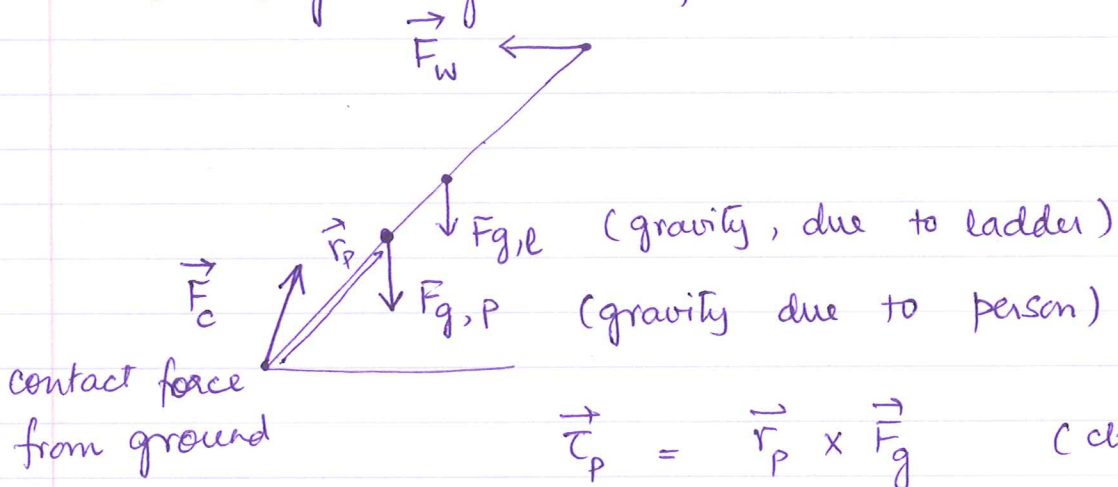 F⃗_w
F_g,l (gravity, due to ladder)
r⃗_p
F⃗_c
F_g,p (gravity due to person)
contact force
from ground
τ⃗_p = r⃗_p × F⃗_g (cl